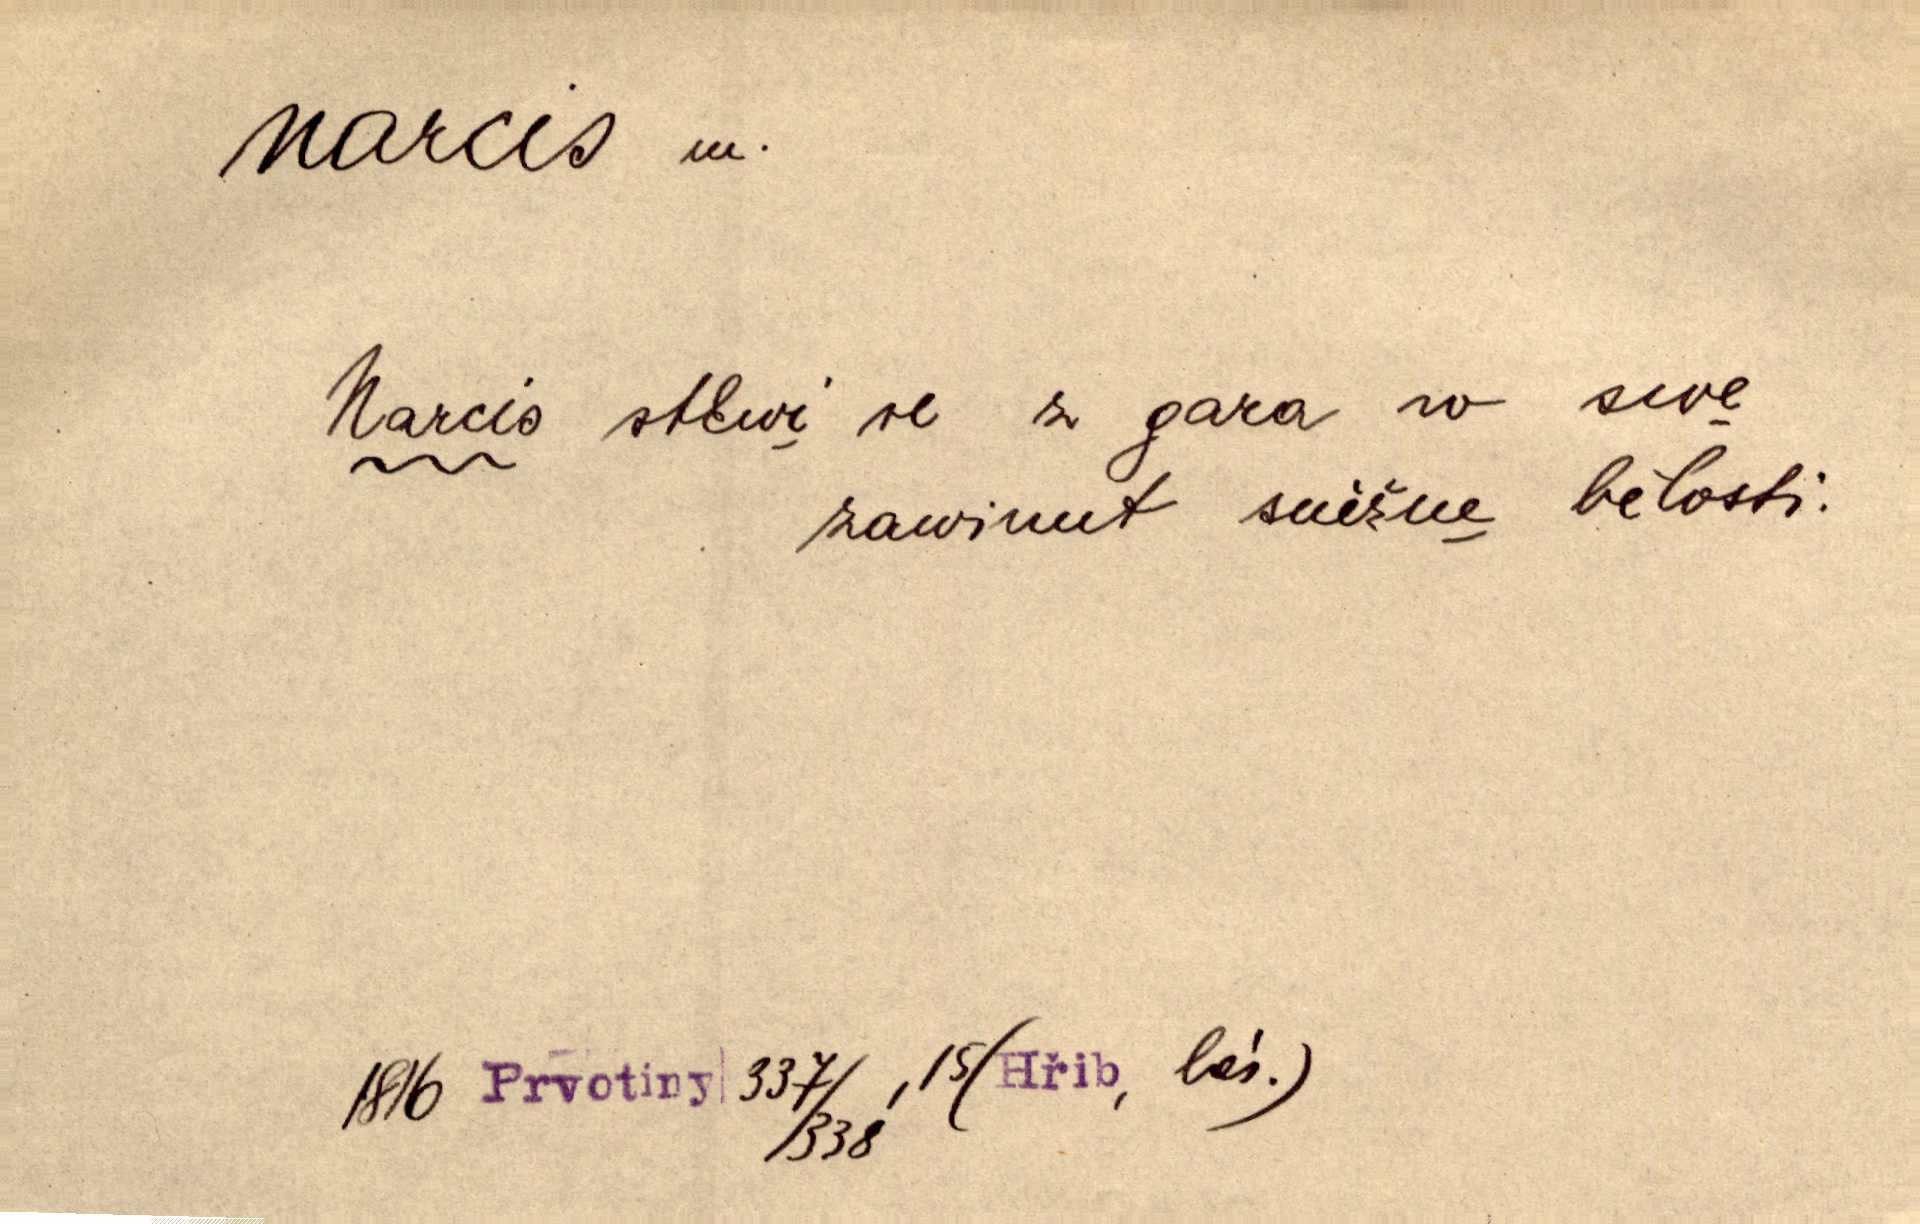 narcis m.
Narcis stkwi se z gara w swe
zawinut sněžne bělosti.
1816 Prvotiny 337/338, 15 (Hřib, bás.)